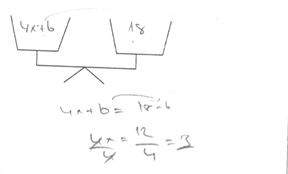 4x+6 18
4x+6 = 18-6
4x/4 = 12/4 = 3